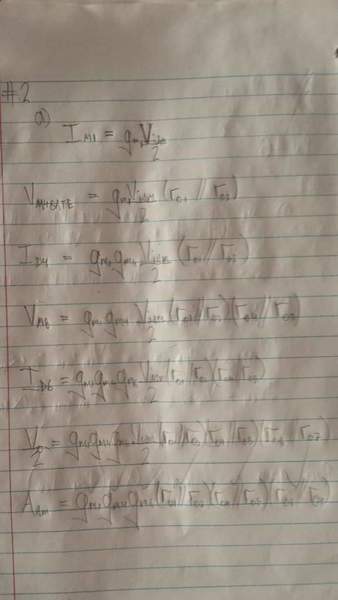 #2
a) I_M1 = g_m1 V_idm/2
V_M4GATE = g_m1 V_idm/2 (r_o1 // r_o3)
I_D4 = g_m1 g_m4 V_idm/2 (r_o1 // r_o3)
V_M6 = g_m1 g_m4 V_idm/2 (r_o1 // r_o3)(r_o4 // r_o5)
I_D6 = g_m1 g_m4 g_m6 V_idm/2 (r_o1 // r_o3)(r_o4 // r_o5)
= g_m1 g_m4 g_m6 V_idm/2 (r_o1 // r_o3)(r_o4 // r_o5)(r_o6 // r_o7)
A_dm = g_m1 g_m4 g_m6 (r_o1 // r_o3)(r_o4 // r_o5)(r_o6 // r_o7)